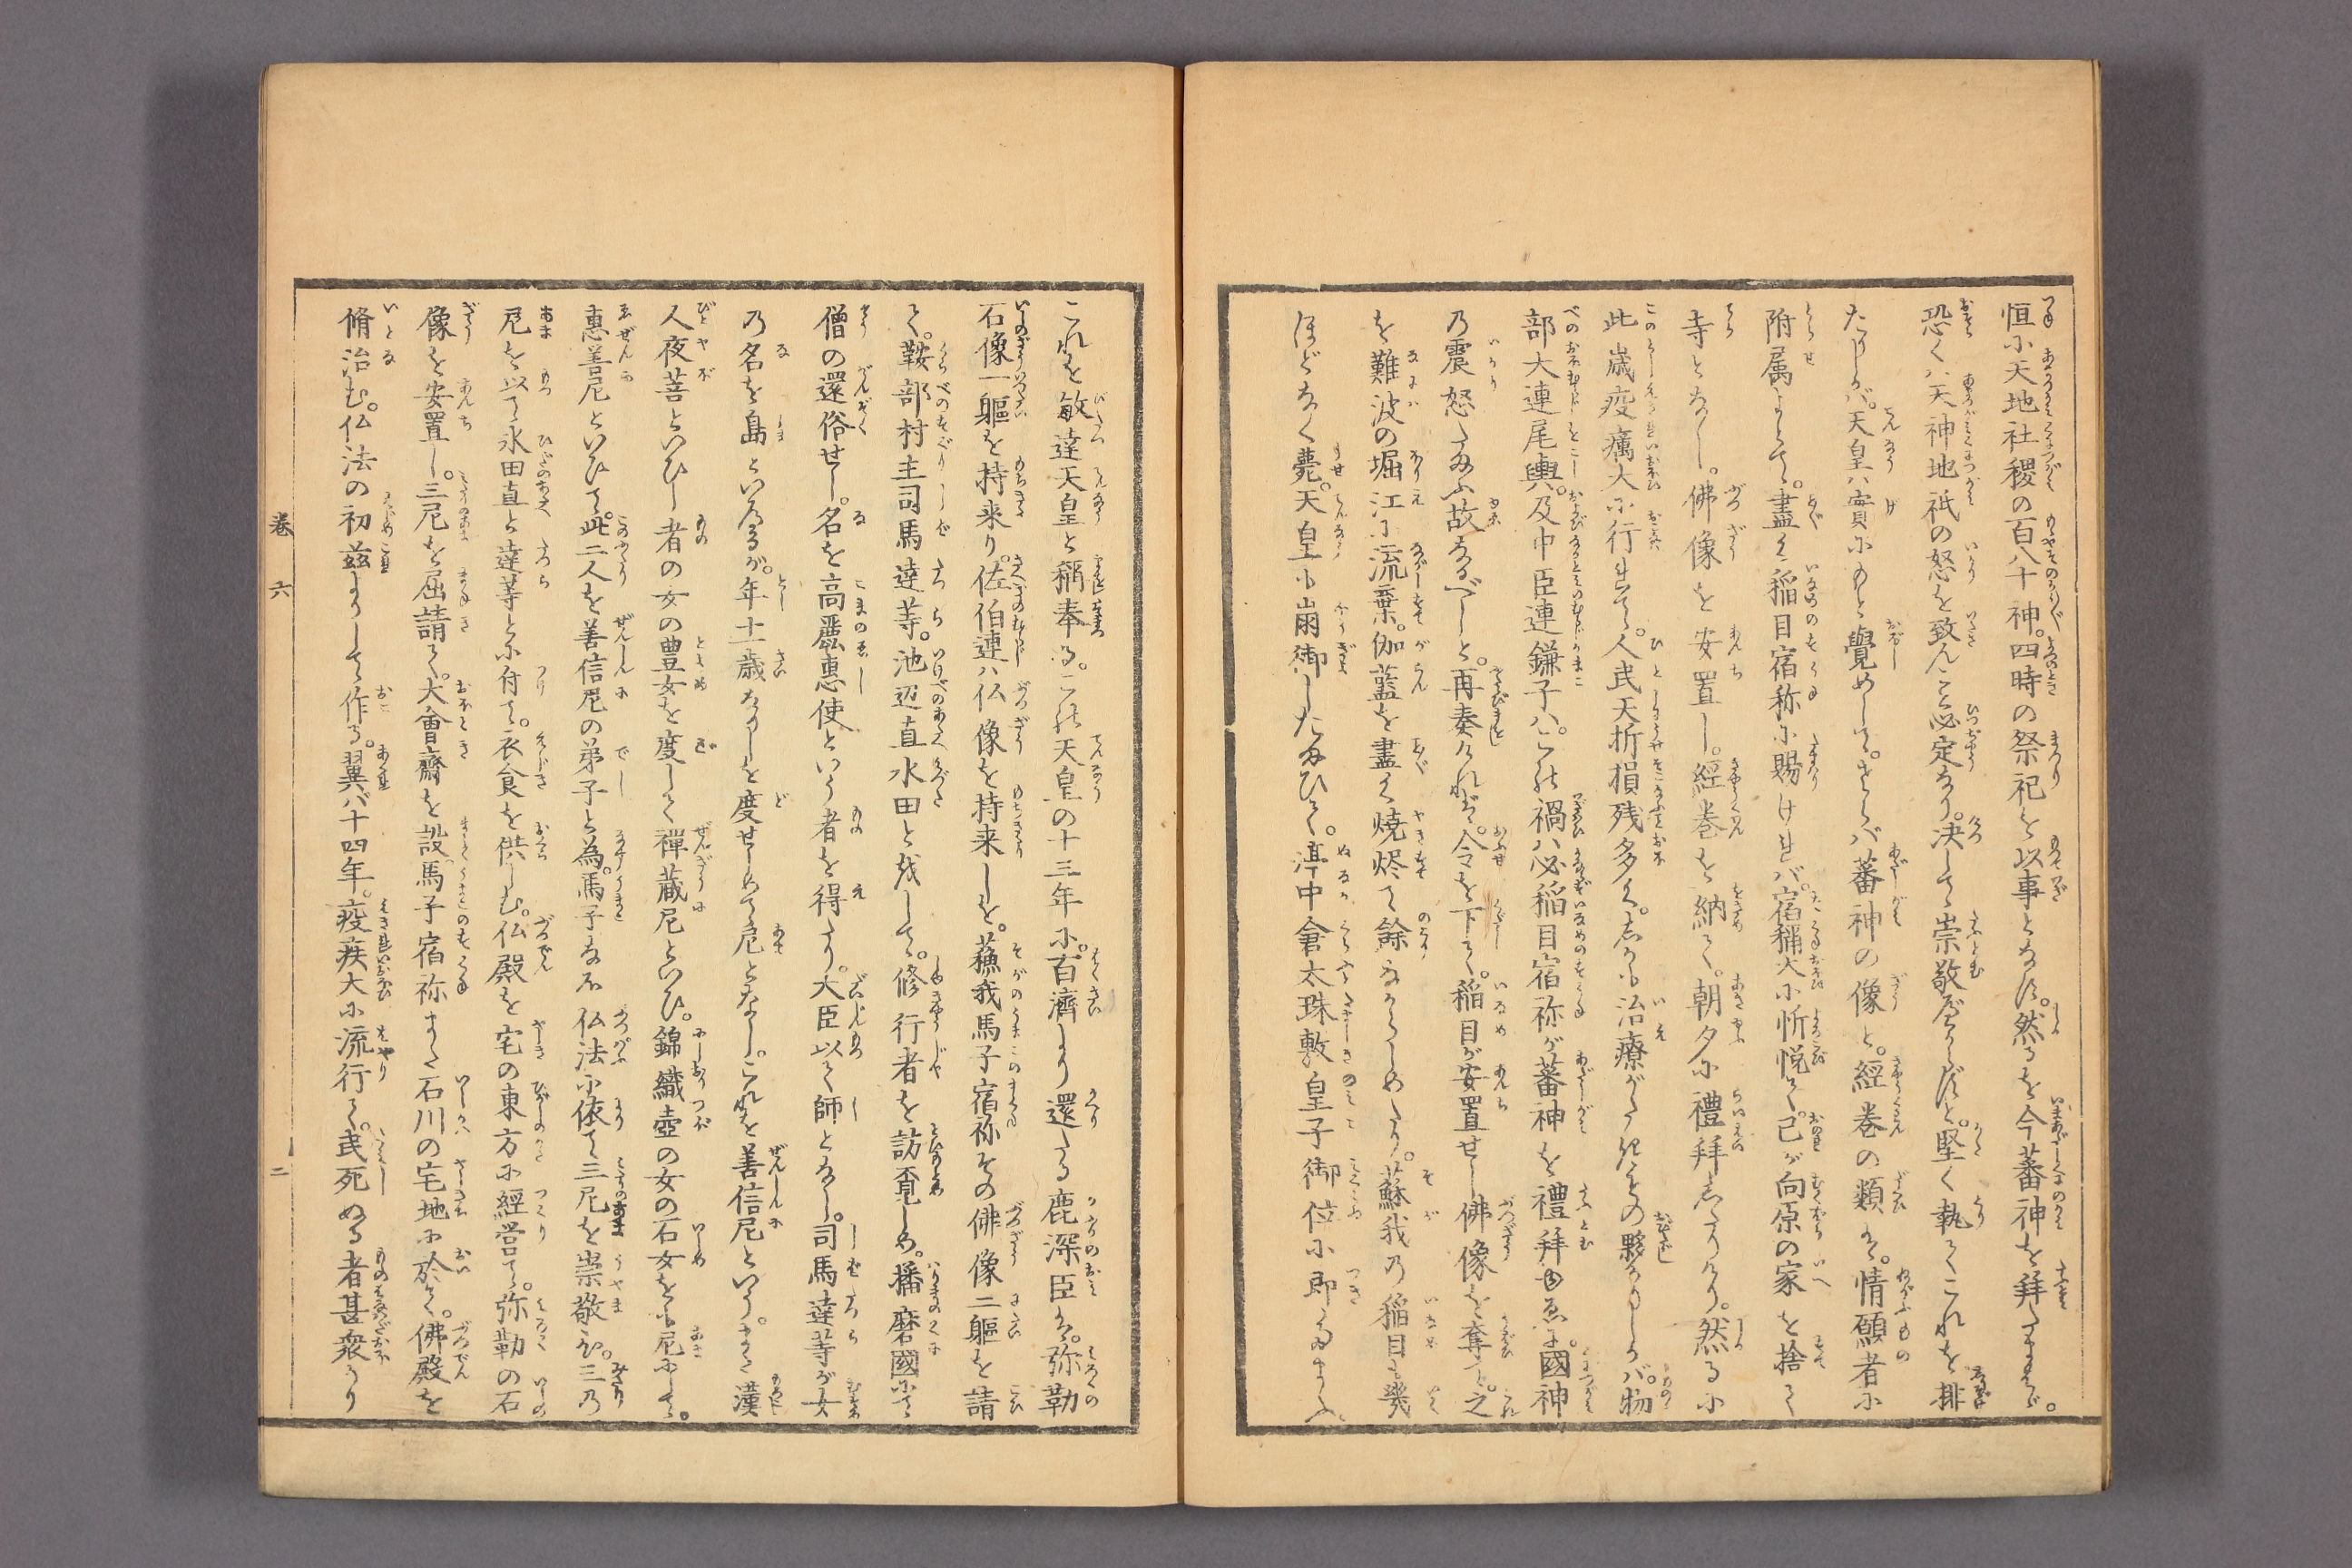 恒に天地社稷の百八十神。四時の祭祀を以事となす。然るを今蕃神を拜たまはゞ。
恐くハ天神地祇の怒を致んこと必定なり。决して崇敬べからずと。堅く執てこれを排
たりしが。天皇ハ實にもと覺めして。さらバ蕃神の像と。經巻の類をバ。情願者に
附属よとて。盡く稲目宿祢に賜けれバ。宿祢大に忻悦て。己が向原の家を捨て
寺となし。佛像を安置し。經巻を納て。朝夕に禮拜したりけり。然るに
此歳疫癘大に行れて。人民夭折損残多く。しかも治療がたきの夥かりしかバ。物
部大連尾輿。及中臣連鎌子ハ。これ禍ハ必稲目宿祢が蕃神を禮拜ゆゑに。國神
乃震怒たまふ故なるべしと。再奏けれバ。令を下て。稲目が安置せし佛像を奪て。之
を難波の堀江に流棄。伽藍を盡く焼燼て餘なからしめたり。蘇我乃稲目も幾
ほどなく薨。天皇も崩御したまひて。渟中倉太珠敷皇子御位に即たまふ。
これを敏達天皇と稱奉る。これ天皇の十三年に。百濟より還たる鹿深臣ハ。弥勒
石像一軀を持来り。佐伯連ハ仏像を持来しを。蘓我馬子宿祢その佛像二軀を請
て。鞍部村主司馬達等。池辺直氷田と形して。修行者を訪覓しめ。播磨國にて
僧の還俗せし。名を高麗惠使といふ者を得たり。大臣以て師となし。司馬達等が女
乃名を島といへるが。年十一歳なりしを度せしめて尼となし。これを善信尼といふ。また漢
人夜菩といひし者の女の豊女を度して禪藏尼といひ。錦織壺の女の石女をも尼にして。
惠善尼といひて。此二人を善信尼の弟子と為。馬子なほ仏法に依て三尼を崇敬ひ。三乃
尼を以て氷田直と達等とに付て。衣食を供しむ。仏殿を宅の東方に經営て。弥勒の石
像を安置し。三尼を屈請て。大會齋を設。馬子宿祢また石川の宅地に於て。佛殿を
脩治む。仏法の初茲よりして作る。翼バ十四年。疫疾大に流行て。民死ぬる者甚衆かり
巻六
二